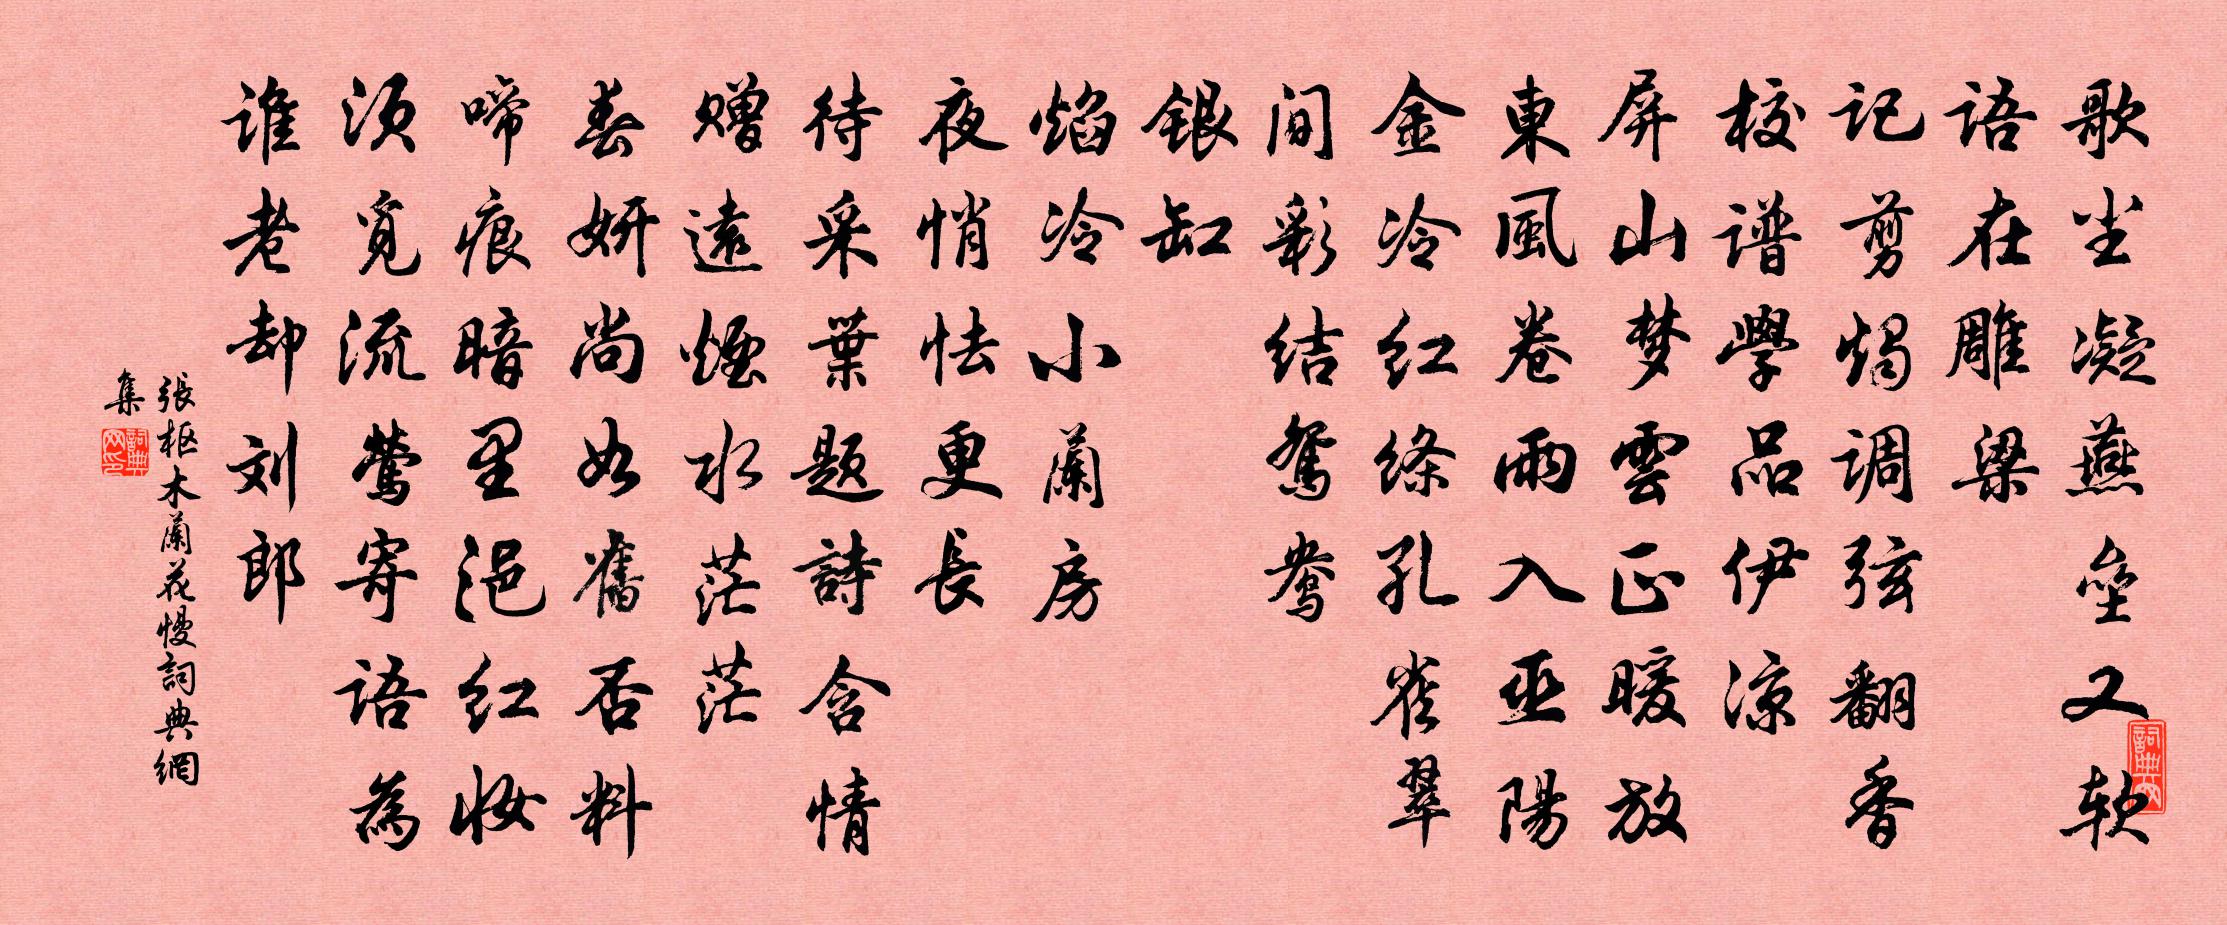 歌尘凝燕垒又软
语在雕梁
记剪燭调弦翻香
校谱學品伊涼
屏山梦雲正暖放
東風卷雨入巫陽
金冷红绦孔雀翠
间彩结鸳鸯
银缸
焰冷小蘭房
夜悄怯更長
待采葉题詩含情
赠遠煙水茫茫
春妍尚如舊否料
啼痕暗里浥红妆
须觅流莺寄语為
谁老却刘郎
張枢木蘭花慢詞典網
集
詞典网印
詞典网